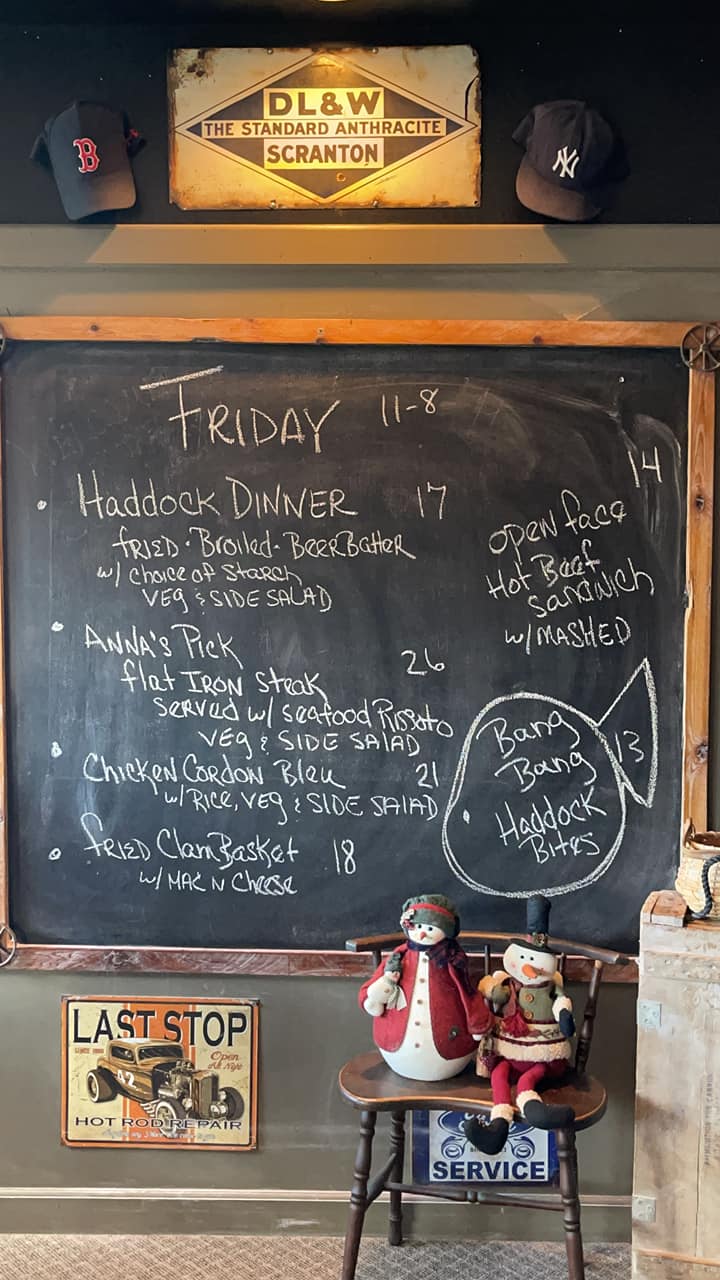 DL&W
THE STANDARD ANTHRACITE
SCRANTON
B
NY
FRIDAY 11-8
HADDOCK DINNER 17
FRIED · Broiled · BeerBatter
w/ choice of Starch
VEG & SIDE SALAD
ANNA'S PICK 26
flat IRON Steak
served w/ seafood Rissoto
VEG & SIDE SALAD
CHICKEN CORDON Bleu 21
w/RICE, VEG & SIDE SALAD
FRIED Clam Basket 18
w/ MAC N Cheese
14
open face
Hot Beef
sandwich
w/ MASHED
Bang
Bang 13
Haddock
Bites
LAST STOP
Open
All Nite
HOT ROD REPAIR
SERVICE